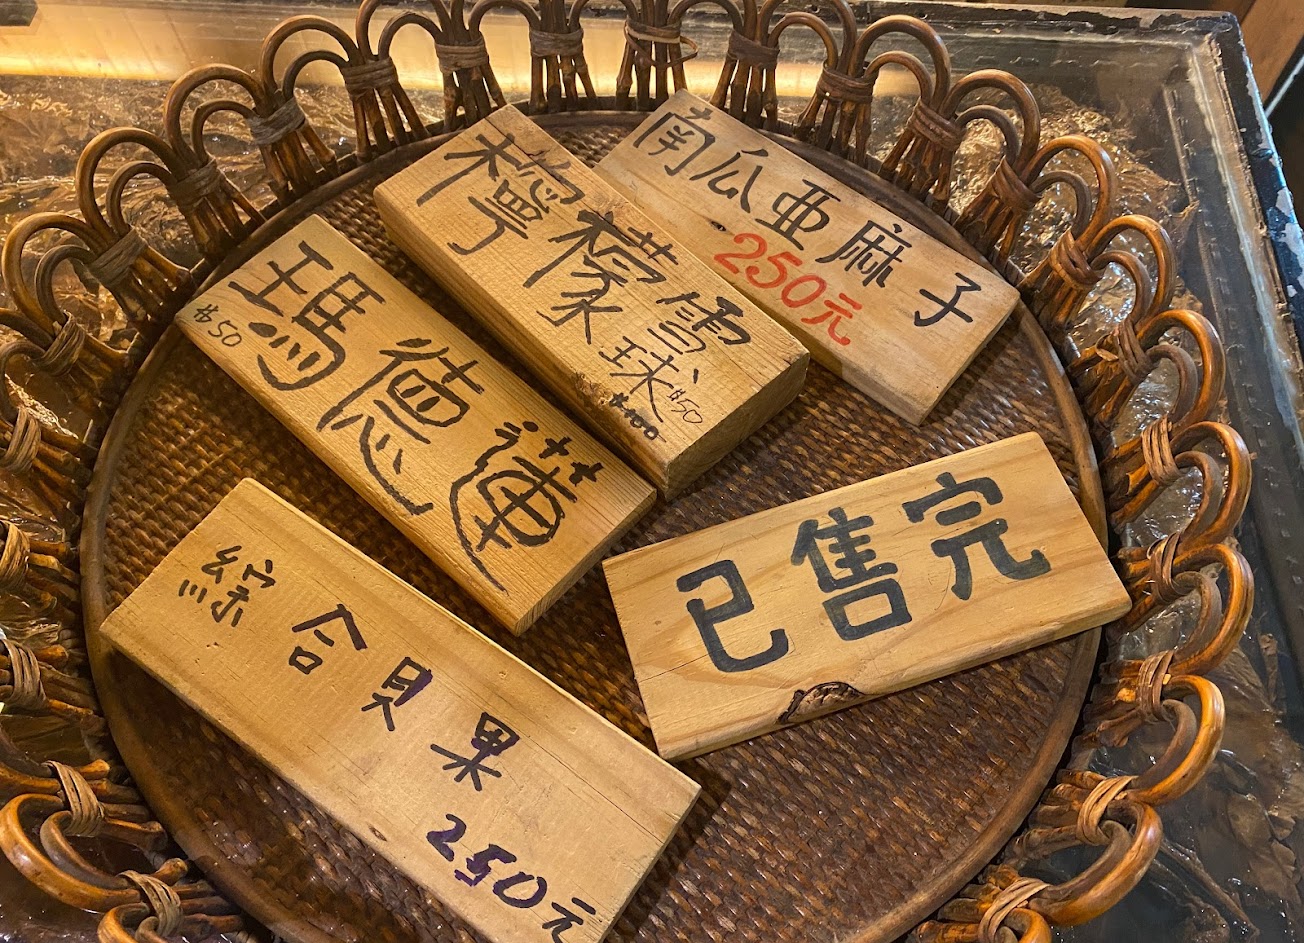 南瓜亞麻子
250元
檸檬雪球 $50
$100
瑪德蓮
$50
已售完
綜合貝果
250元